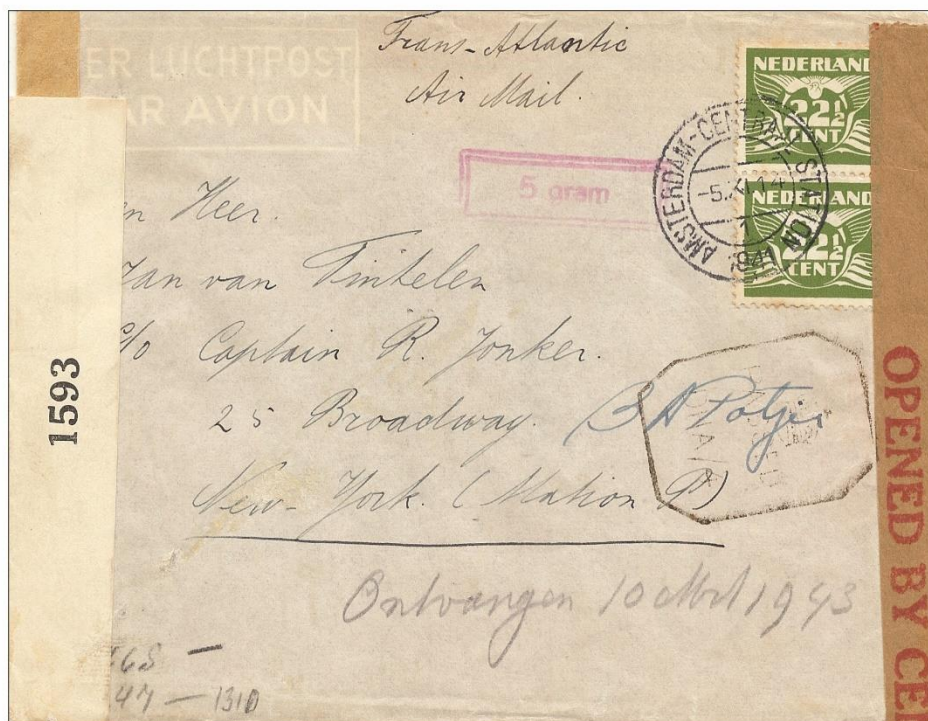 ER LUCHTPOST
AR AVION
Trans-Atlantic
Air Mail.
NEDERLAND
22½
CENT
NEDERLAND
22½
CENT
AMSTERDAM-CENTRAAL STATION
-5.XI.14
1
1941
5 gram
n Heer.
Jan van Tinkelen
c/o Captain R. Jonker.
25 Broadway.
New-York. (Station P)
Ontvangen 10 1943
1593
OPENED BY CE
47 — 1310